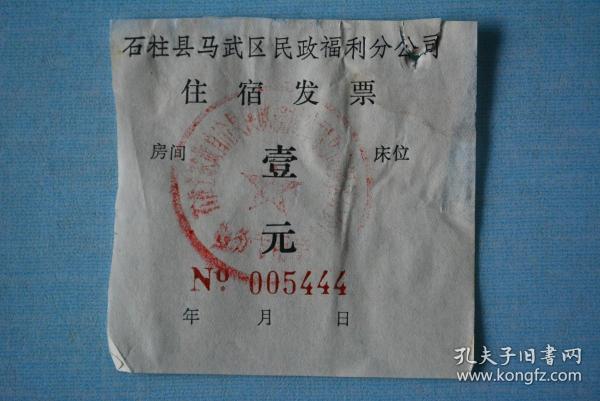 石柱县马武区民政福利分公司
住宿发票
房间 壹 床位
元
Nº 005444
年 月 日
孔夫子旧书网
www.kongfz.com